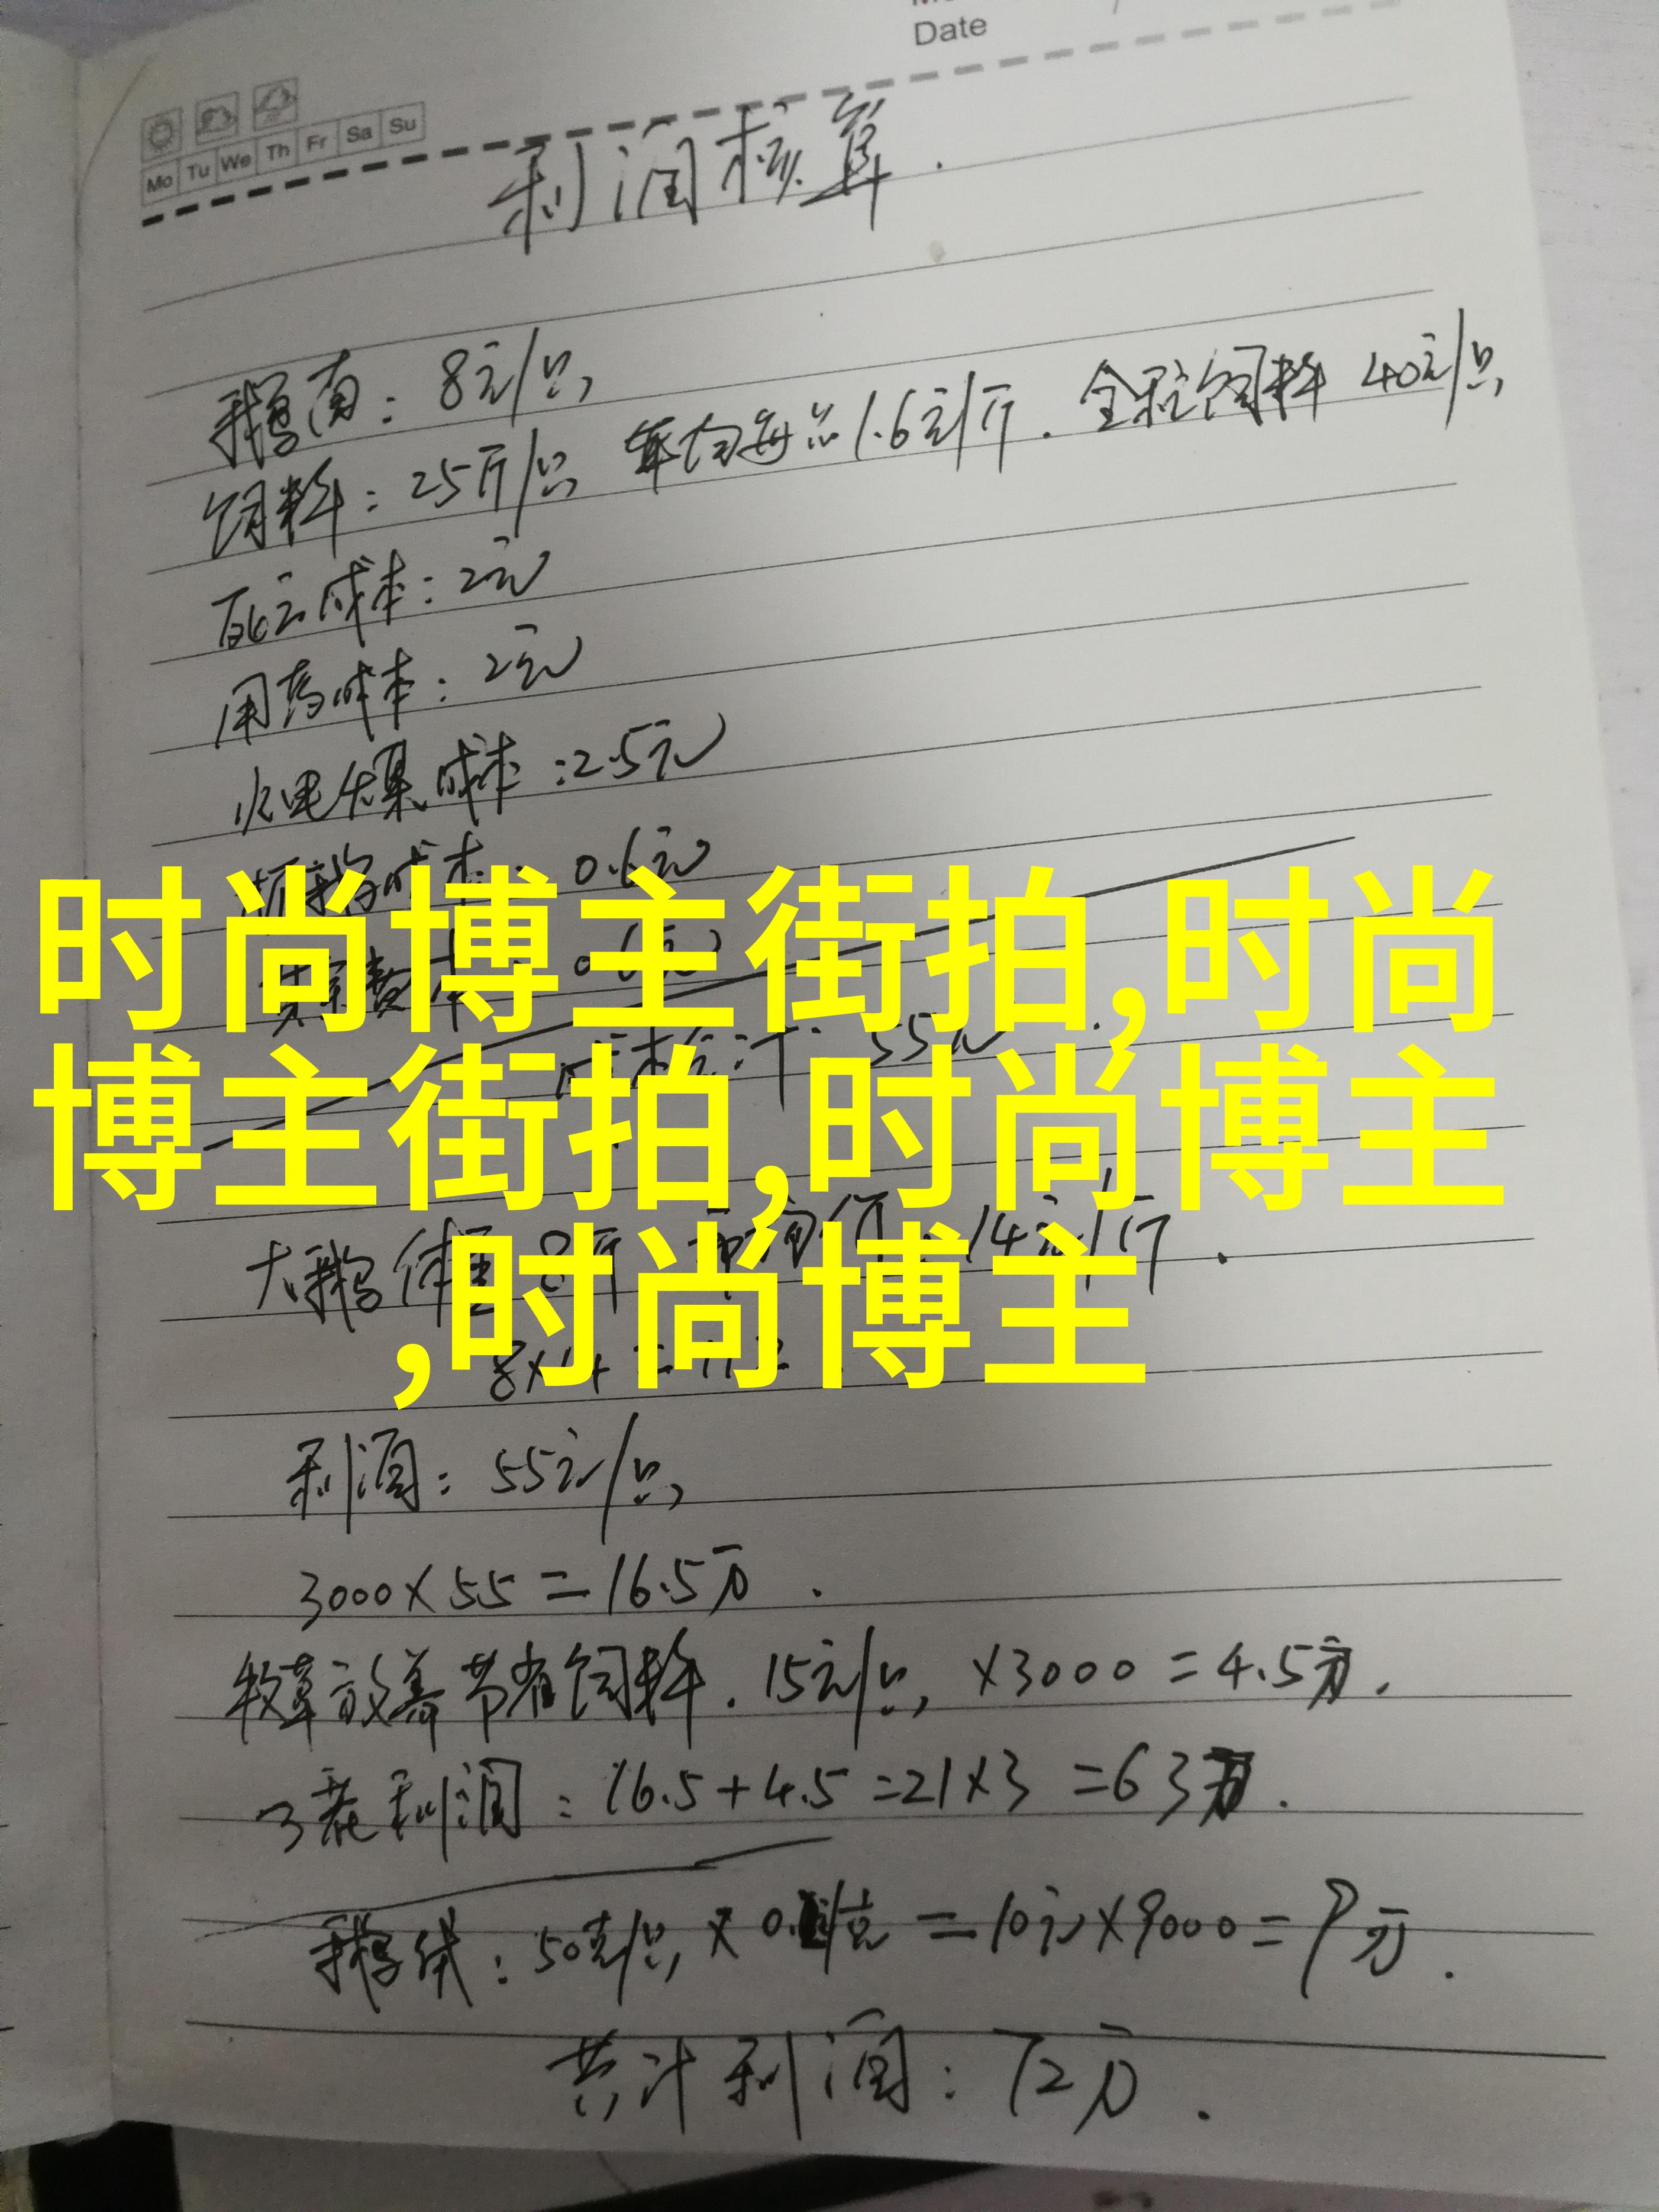 Date
Mo Tu We Th Fr Sa Su
利润核算.
鹅苗: 8元/只,
饲料: 25斤/只, 平均每斤1.6元/斤. 全程饲料 40元/只,
死亡成本: 2元
用药成本: 2元
水电煤成本: 2.5元
成本: 0.6元
时尚博主街拍,时尚
博主街拍,时尚博主
,时尚博主
55元.
大鹅体重 8斤 14元/斤.
8×14=112
利润: 55元/只,
3000×55=16.5万.
牧草放养节省饲料. 15元/只, ×3000=4.5万.
3茬利润: 16.5+4.5=21×3=63万.
鹅绒: 50克/只, =10元×9000=9万.
共计利润: 72万.